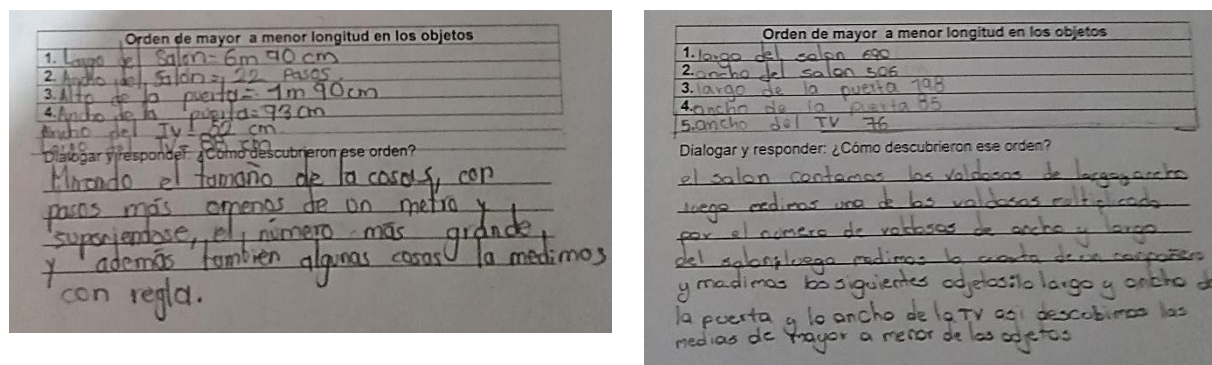 Orden de mayor a menor longitud en los objetos
1. Largo del Salon = 6m 90 cm
2. Ancho del Salón = 22 Pasos
3. Alto de la puerta = 1m 90cm
4. Ancho de la puerta = 93 cm
Ancho del TV = 52 cm
Largo del TV = cm
Dialogar y responder: ¿Cómo descubrieron ese orden?
Mirando el tamaño de la cosas, con
pasos más omenos de un metro y
suponiendose, el, número más grande,
y además tambien algunas cosas la medimos
con regla.
Orden de mayor a menor longitud en los objetos
1. largo del salon 690
2. ancho del salon 506
3. largo de la puerta 198
4. ancho de la puerta 85
5. ancho del TV 76
Dialogar y responder: ¿Cómo descubrieron ese orden?
el salon contamos las valdosas de largo y ancho
luego medimos una de las valdosas
por el número de valdosas de ancho y largo
del salon, luego medimos la cuarta de un compañero
y madimos los siguientes odjetos: lo largo y ancho de
la puerta y lo ancho de la TV asi descubimos las
medias de mayor a menor de los odjetos